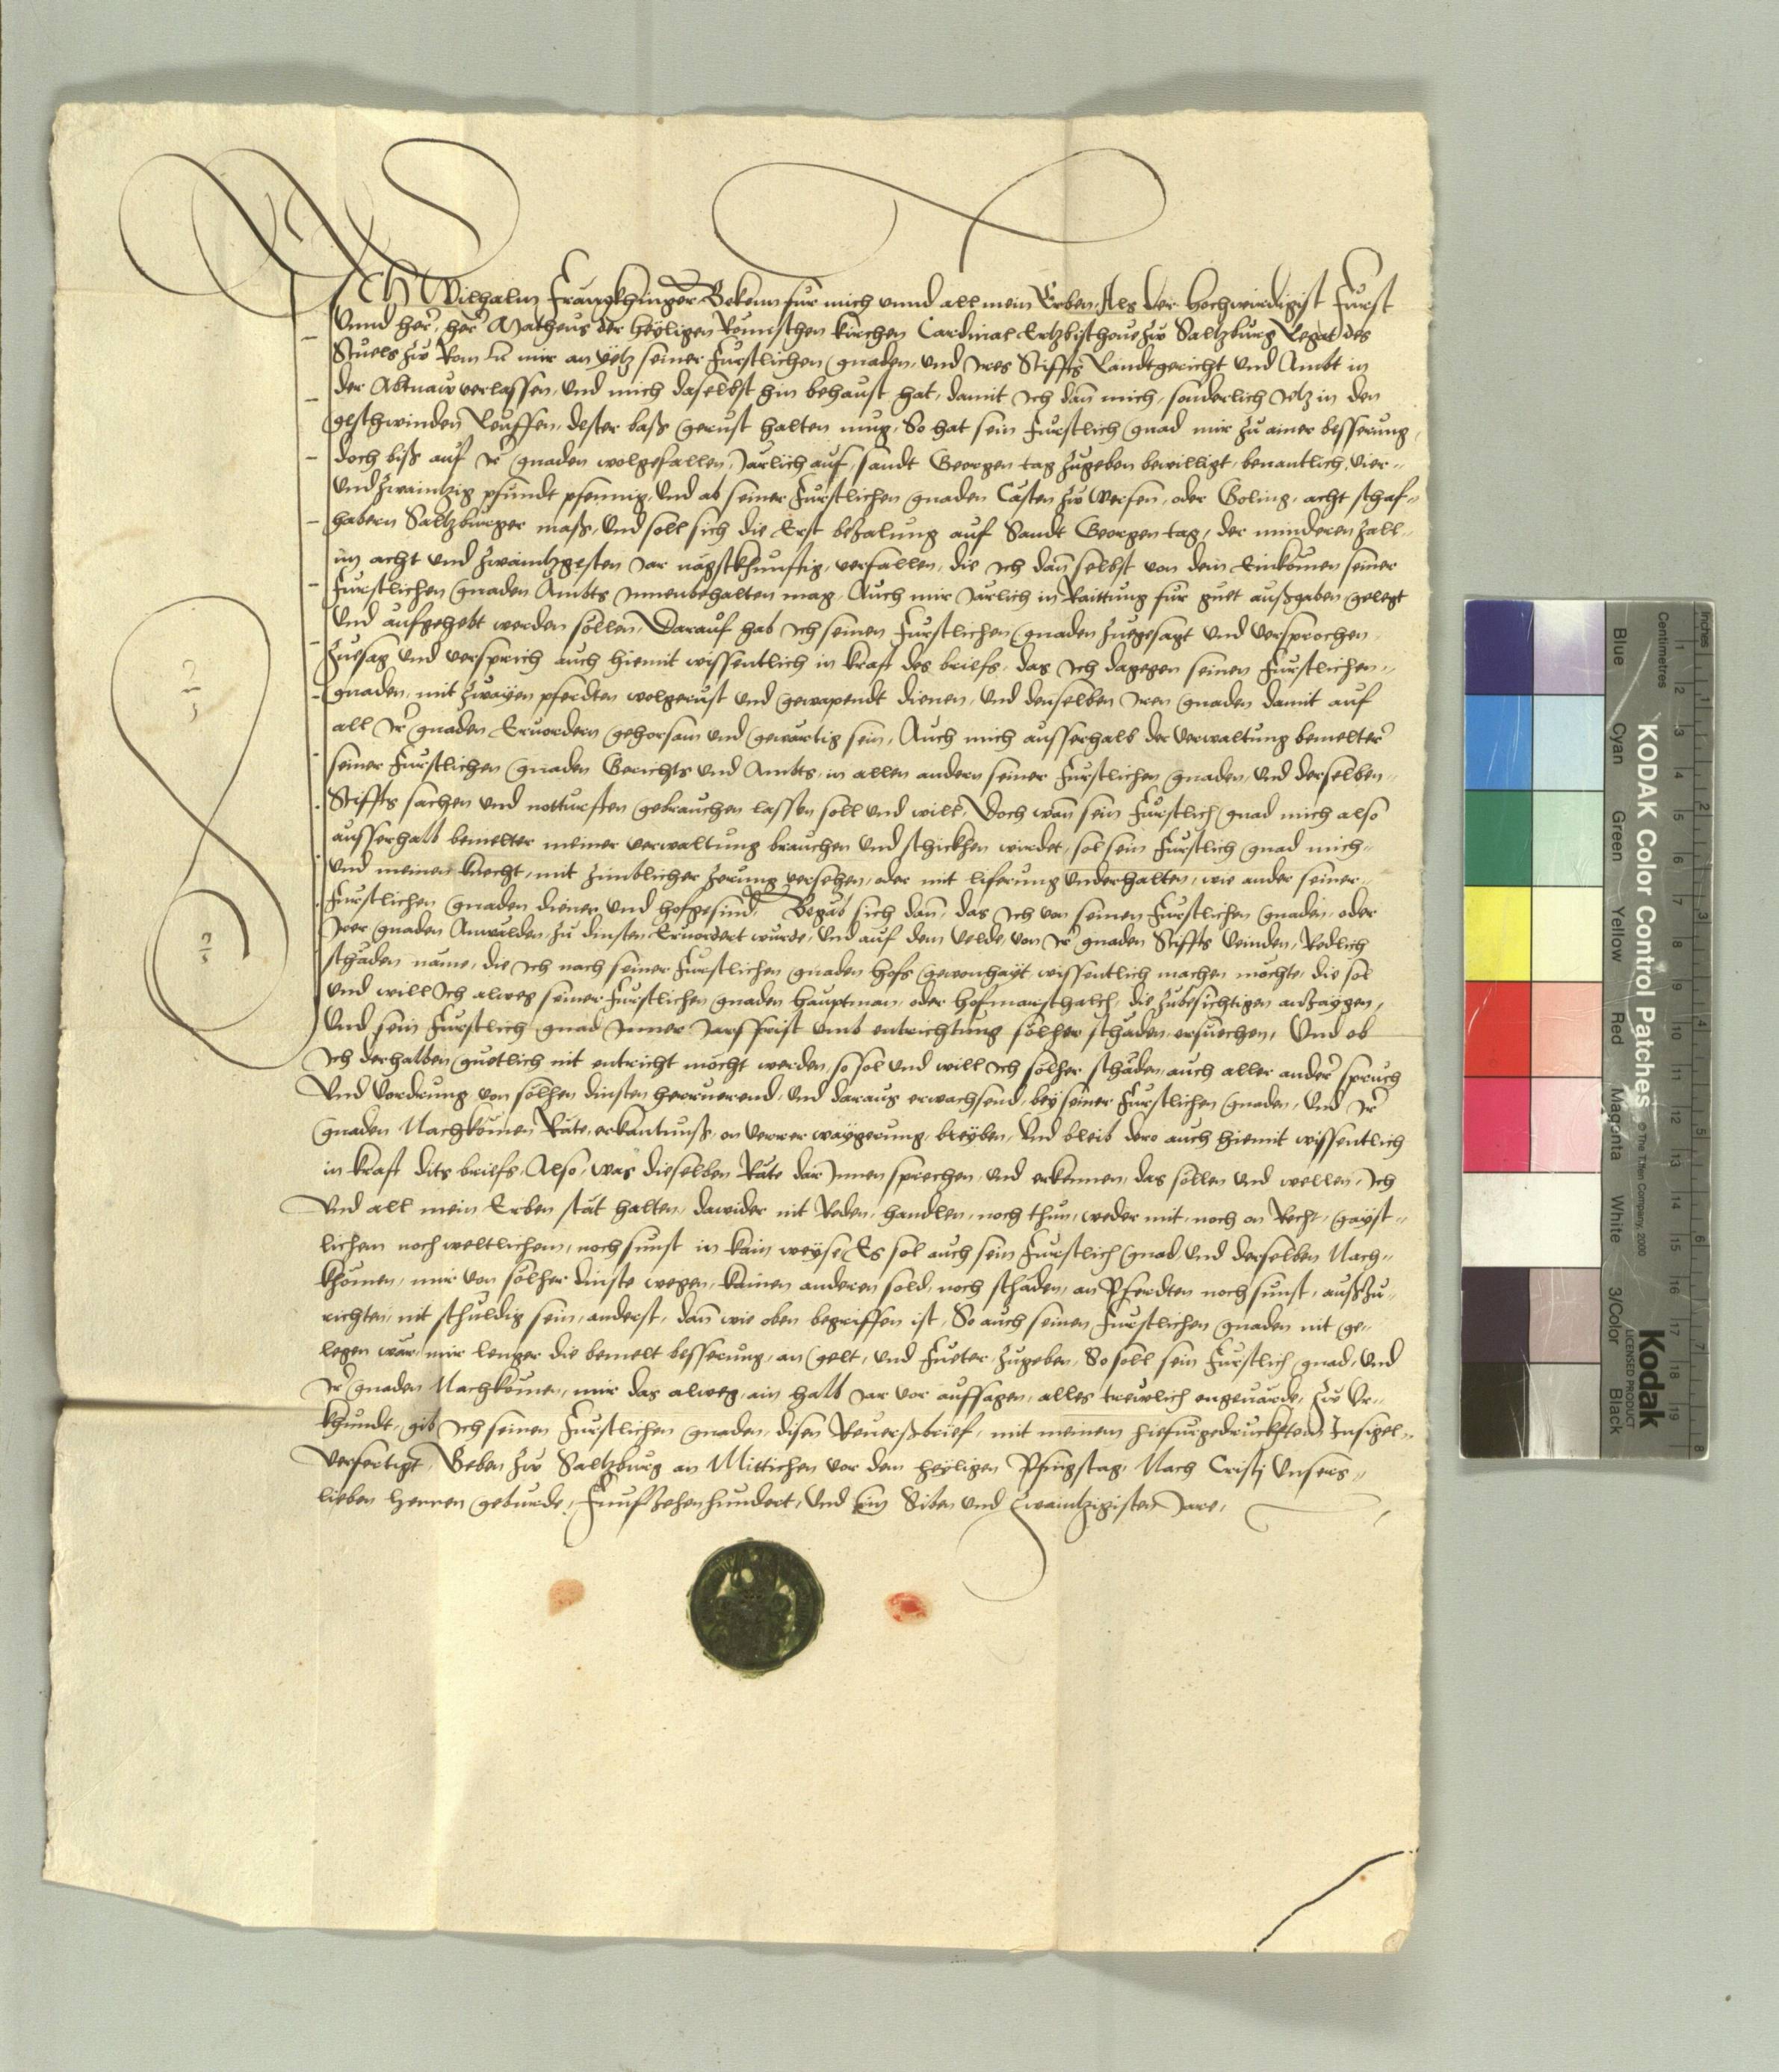 Ich Wilhalm Fraungkhinger Bekenn fur mich vnnd all mein Erben, Als der hochwirdigist Furst
Vnnd her, her Matheus der heyligen Römischen kirchen Cardinal Ertzbischoue zw Saltzburg Legat des
Stuels zw Rom mir an yetz seiner Furstlichen gnaden, vnd Ires Stiffts Landtgericht vnd Ambt in
der Abtnaw verlassen, vnd mich daselbst hin behaust hat, damit ich dan̄ mich, sonderlich yetz in den
geschwinden Leuffen, dester bass gerust halten mug, So hat sein Furstlich gnad mir zu ainer besserung,
doch biss auf Ir gnaden wolgefallen, Järlich auf, sandt Georgen tag zugeben bewilligt, benantlich, vier-
vnd zwaintzig pfundt pfennig, vnd ab seiner Furstlichen gnaden Casten zw Werfen, oder Goling, acht schaf-
habern Saltzburger mass, vnd soll sich die Erst bezalung auf Sandt Georgen tag, der minderen Zall-
im acht vnd zwaintzgesten Jar nagstkhunftig, verfallen, die ich dan̄ selbst von dem Einkomen seiner
Furstlichen gnaden Ambts Innenbehalten mag, Auch mir Järlich in Raittung fur guet aussgaben gelegt
Vnd aufgehebt werden söllen, Darauf hab Ich seinen Furstlichen gnaden zuegesagt vnd versprochen,
Zuesag vnd versprich auch hiemit wissentlich in kraft des briefs, das Ich dagegen seinen Furstlichen-
gnaden, mit zwayen pferdten wolgerust vnd gewapendt dienen, vnd denselben Iren gnaden damit auf
all Ir gnaden Eruordern gehorsam vnd gewärtig sein, Auch mich ausserhalb der verwaltung bemelter
seiner Furstlichen gnaden Gerichts vnd Ambts, in allen andern seiner Furstlichen gnaden, vnd derselben-
Stiffts sachen vnd notturften gebrauchen lassen soll vnd will, Doch wan̄ sein Furstlich gnad mich also
ausserhalb bemelter meiner verwaltung brauchen vnd schickhen wirdet, sol sein Furstlich gnad mich-
vnd meinen knecht, mit zimblicher zerung versehen, oder mit liferung vnderhalten, wie ander seiner-
Furstlichen gnaden diener vnd hofgesind, Begäb sich dan̄, das Ich von seinen Furstlichen gnaden, oder
Irer gnaden Anwälden, zu dinsten Eruordert wurde, vnd auf dem velde, von Ir gnaden Stiffts veinden, Redlich
schäden näme, die Ich nach seiner Furstlichen gnaden hofs gewonhayt wissentlich machen möchte, die sol
vnd will Ich alweg seiner Furstlichen gnaden hauptman, oder hofmarschalch, die zubesichtigen anzaygen,
Vnd sein Furstlich gnad Inner Jarssfrist vmb entrichtung sölher schäden ersuechen, Vnd ob
Ich derhalben guetlich nit entricht möcht werden, so sol vnd will Ich sölher schäden, auch aller ander spruch
Vnd vordrung von sölhen dinsten herruerend, vnd daraus erwachsend, bey seiner Furstlichen gnaden, vnd Ir
gnaden Nachkomen Räte, erkantnuss, on verrer waygerung, bleyben, Vnd bleib dero auch hiemit wissentlich
in kraft dits briefs, Also, was dieselben Räte dar Innen sprechen vnd erkennen, das söllen vnd wellen, Ich
Vnd all mein Erben stät halten, dawider nit Reden, handlen, noch thun, weder mit, noch on Recht, gayst-
lichem noch weltlichem, noch sunst in kain weyse, Es sol auch sein Furstlich gnad, vnd derselben Nach-
khomen, mir von sölher dinste wegen, kainen anderen sold, noch schäden, an Pferdten noch sunst, ausszu-
richten, nit schuldig sein, anderst, dan̄ wie oben begriffen ist, So auch seinen Furstlichen gnaden nit ge-
legen wär, mir lenger die bemelt besserung, an gelt, vnd Fueter, zugeben, So soll sein Furstlich gnad, vnd
Ir gnaden Nachkomen, mir das alweg, ain halb Jar vor aufsagen, alles trewlich ongeuärde, Zw Vr-
khundt, gib Ich seinen Furstlichen gnaden, disen Reuerssbrief, mit meinem hiefurgedruckhten Insigel-
Verfertigt, Geben zw Saltzburg an Mittichen vor dem heyligen Pfingstag, Nach Cristj Vnsers-
lieben herren geburde, Funfzehenhundert, Vnd Im Siben vnd Zwaintzigisten Jare,
KODAK Color Control Patches
© The Tiffen Company, 2000
Kodak
LICENSED PRODUCT
Inches
Centimetres
Blue Cyan Green Yellow Red Magenta White 3/Color Black